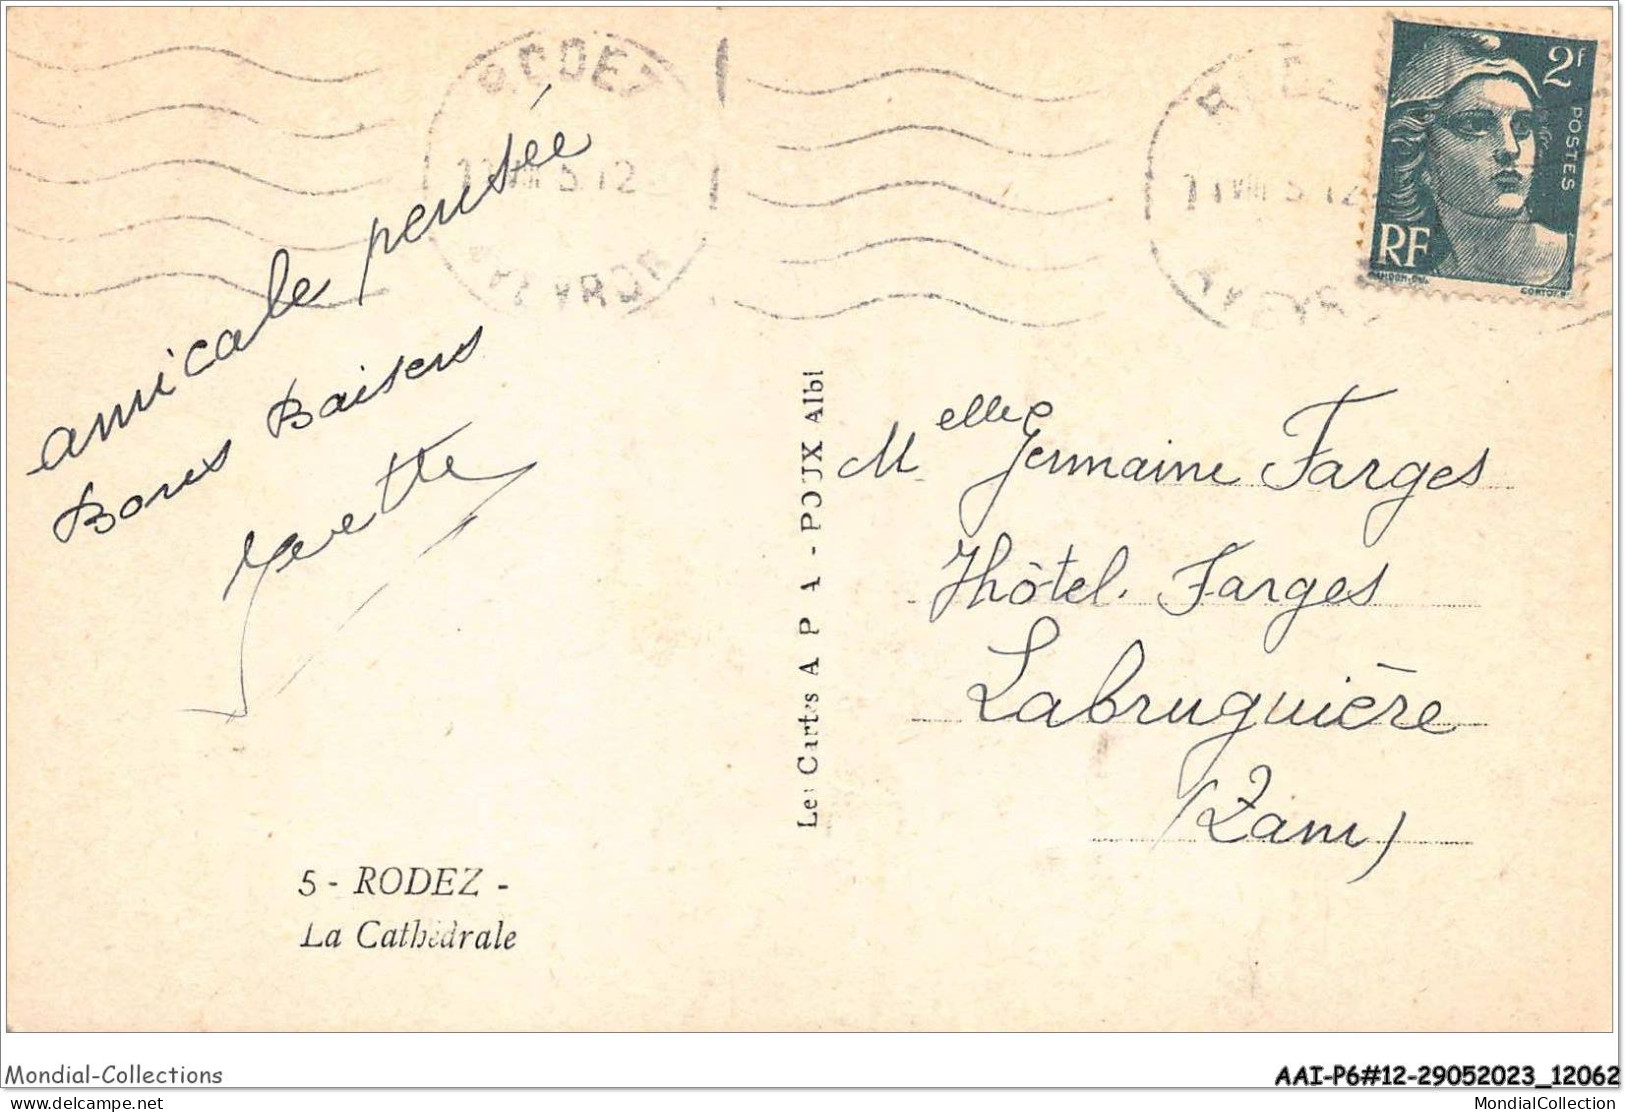 RODEZ
AVEYRON
2F
POSTES
RF
amicale pensée
Bons Baisers
Yvette
Les Cartes A P A - POUX Albi
Melle Germaine Farges
Hôtel. Farges
Labruguière
(Tarn)
5 - RODEZ -
La Cathédrale
Mondial-Collections
AAI-P6#12-29052023_12062
www.delcampe.net
MondialCollection